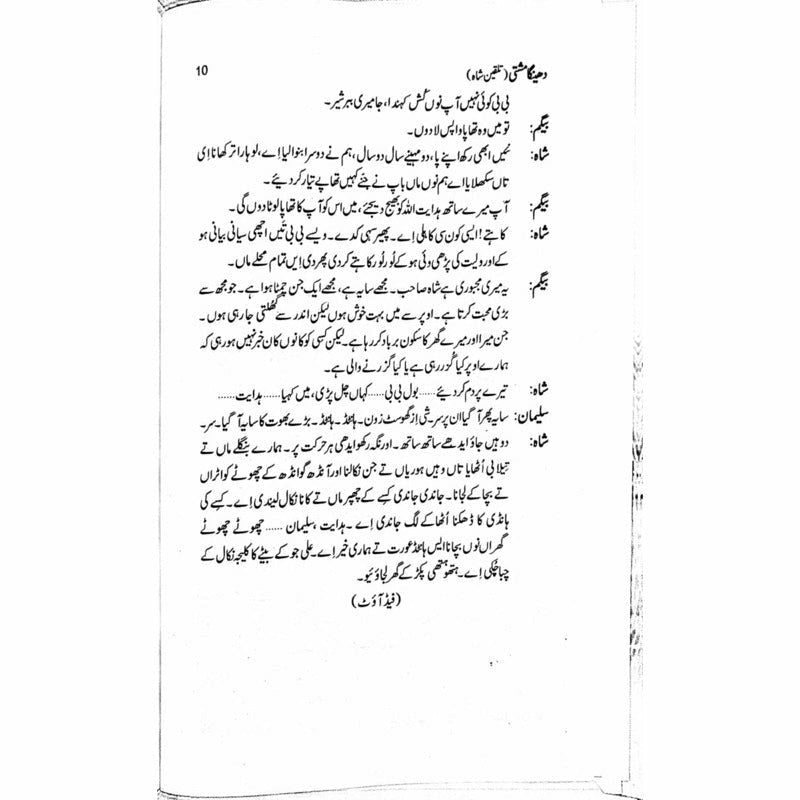 دھینگا مشتی (تلقین شاہ) 10
بی بی کوئی نہیں آپ نوں کُش کہندا، جا میری ببر شیر۔
بیگم: تو میں وہ تھاپا واپس لا دوں۔
شاہ: نئیں ابھی رکھ اپنے پا، دو مہینے سال دو سال، ہم نے دوسرا بنوا لیا اے، لوہارا ترکھانا ای
تاں سکھلایا اے ہم نوں ماں باپ نے جنے کہیں تھاپے تیار کر دئیے۔
بیگم: آپ میرے ساتھ ہدایت اللہ کو بھیج دیجئے، میں اس کو آپ کا تھاپا لوٹا دوں گی۔
شاہ: کاہتے! ایسی کون سی کاہلی اے۔ پھیر سہی کدے۔ ویسے بی بی تئیں اچھی سیانی بیانی ہو
کے اور ولیت کی پڑھی وئی ہو کے لُور لُور کاہتے کر دی پھر دی ایں تمام محلے ماں۔
بیگم: یہ میری مجبوری ہے شاہ صاحب۔ مجھے سایہ ہے، مجھے ایک جن چمٹا ہوا ہے۔ جو مجھ سے
بڑی محبت کرتا ہے۔ اوپر سے میں بہت خوش ہوں لیکن اندر سے گھلتی جا رہی ہوں۔
جن میرا اور میرے گھر کا سکون برباد کر رہا ہے۔ لیکن کسی کو کانوں کان خبر نہیں ہو رہی کہ
ہمارے اوپر کیا گزر رہی ہے یا کیا گزرنے والی ہے۔
شاہ: تیرے پر دم کر دئیے...... بول بی بی...... کہاں چل پڑی، میں کہیا...... ہدایت......
سلیمان: سایہ پھر آ گیا ان پر سر۔ شی از گھوسٹ زون۔ ہانٹڈ۔ ہانٹڈ۔ بڑے بھوت کا سایہ آ گیا۔ سر۔
شاہ: دوہیں جاؤ ایدھے ساتھ ساتھ۔ اور نگہ رکھو ایدھی ہر حرکت پر۔ ہمارے بنگلے ماں تے
تیلا بی اُٹھایا تاں وہیں ہوریاں تے جن نکالنا اور آنڈھ گوانڈھ کے چھوٹے کواٹراں
تے بچا کے لجانا۔ جاندی جاندی کسے کے چھپر ماں تے کانا نکال لیندی اے۔ کسے کی
ہانڈی کا ڈھکنا اُٹھا کے لگ جاندی اے۔ ہدایت، سلیمان ...... چھوٹے چھوٹے
گھراں نوں بچانا ایس ہانٹڈ عورت تے ہماری خیر اے۔ علی جو کے بیٹے کا کلیجہ نکال کے
چبا چکی اے۔ ہتھو ہتھی پکڑ کے گھر لجاؤئیو۔
(فیڈ آؤٹ)